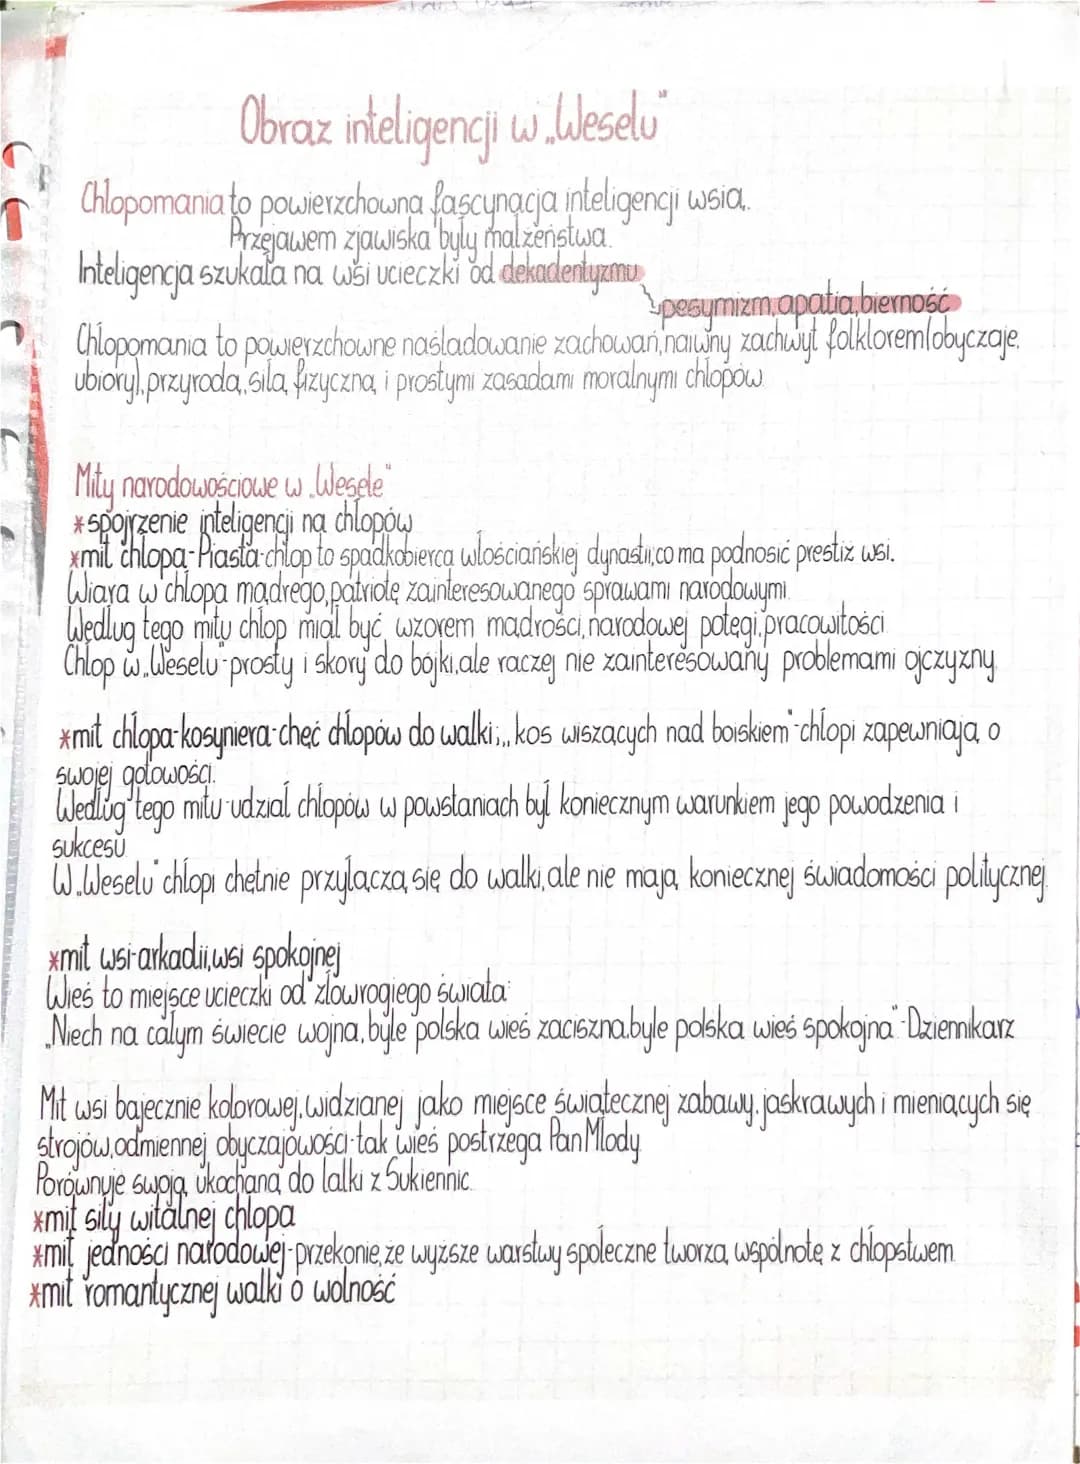 Obraz inteligencji w „Weselu"
Chłopomania to powierzchowna fascynacja inteligencji wsią.
Przejawem zjawiska były małżeństwa.
Inteligencja szukała na wsi ucieczki od dekadentyzmu
pesymizm, apatia, bierność
Chłopomania to powierzchowne naśladowanie zachowań, naiwny zachwyt folklorem (obyczaje,
ubiory), przyrodą, siłą fizyczną i prostymi zasadami moralnymi chłopów
Mity narodowościowe w „Wesele"
*spojrzenie inteligencji na chłopów
*mit chłopa-Piasta-chłop to spadkobierca włościańskiej dynastii, co ma podnosić prestiż wsi.
Wiara w chłopa mądrego, patriotę zainteresowanego sprawami narodowymi.
Według tego mitu chłop miał być wzorem mądrości, narodowej potęgi, pracowitości
Chłop w „Weselu"-prosty i skory do bójki, ale raczej nie zainteresowany problemami ojczyzny.
*mit chłopa-kosyniera-chęć chłopów do walki; „kos wiszących nad boiskiem"-chłopi zapewniają o
swojej gotowości.
Według tego mitu-udział chłopów w powstaniach był koniecznym warunkiem jego powodzenia i
sukcesu
W „Weselu" chłopi chętnie przyłączą się do walki, ale nie mają koniecznej świadomości politycznej.
*mit wsi-arkadii, wsi spokojnej
Wieś to miejsce ucieczki od "złowrogiego świata"
„Niech na całym świecie wojna, byle polska wieś zaciszna, byle polska wieś spokojna"-Dziennikarz
Mit wsi bajecznie kolorowej, widzianej jako miejsce świątecznej zabawy, jaskrawych i mieniących się
strojów, odmiennej obyczajowości-tak wieś postrzega Pan Młody
Porównuje swoją ukochaną do lalki z Sukiennic.
*mit siły witalnej chłopa
*mit jedności narodowej-przekonie, że wyższe warstwy społeczne tworzą wspólnotę z chłopstwem.
*mit romantycznej walki o wolność